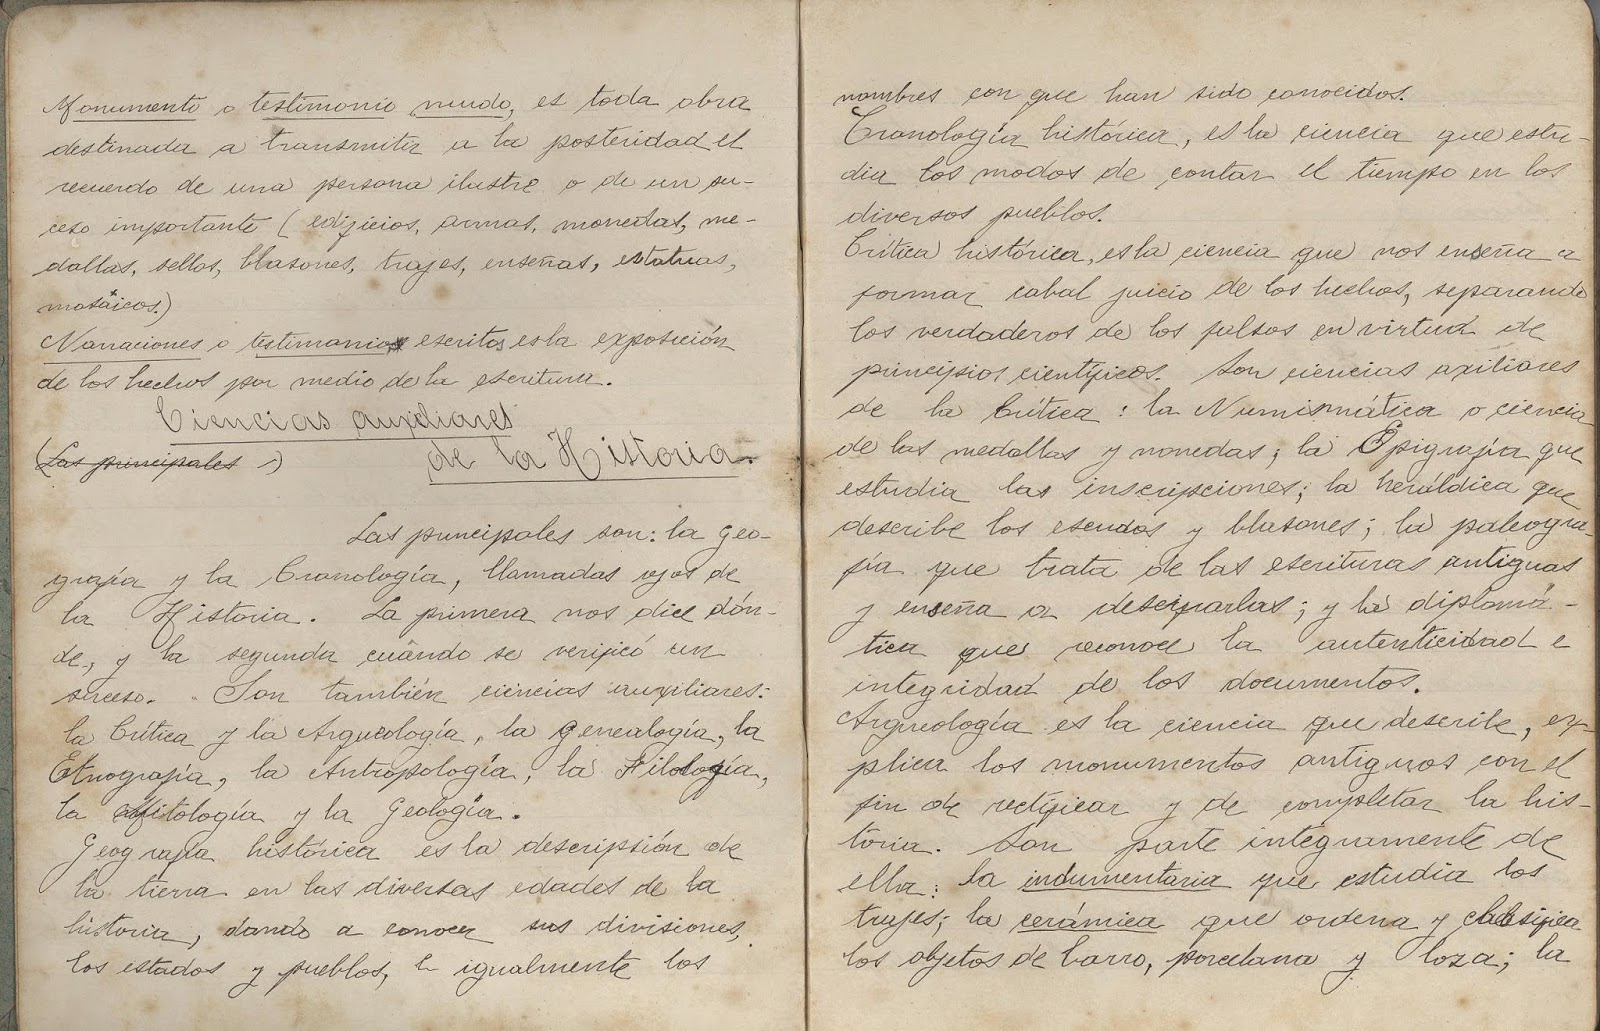 Monumento o testimonio mudo, es toda obra
destinada a transmitir a la posteridad el
recuerdo de una persona ilustre o de un su-
ceso importante (edificios, armas, monedas, me-
dallas, sellos, blasones, trajes, enseñas, estatuas,
mosáicos.)
Narraciones o testimonios escritos es la exposición
de los hechos por medio de la escritura.
Ciencias auxiliares
(Las principales :)
de la Historia.
Las principales son: la geo-
grafía y la Cronología, llamadas ojos de
la Historia. La primera nos dice dón-
de, y la segunda cuándo se verificó un
suceso. Son también ciencias auxiliares:
la Crítica y la Arqueología, la genealogía, la
Etnografía, la Antropología, la Filología,
la Mitología y la Geología.
Geografía histórica es la descripsión de
la tierra en las diversas edades de la
historia, dando a conocer sus divisiones,
los estados y pueblos, e igualmente los
nombres con que han sido conocidos.
Cronología histórica, es la ciencia que estu-
dia los modos de contar el tiempo en los
diversos pueblos.
Crítica histórica, es la ciencia que nos enseña a
formar cabal juicio de los hechos, separando
los verdaderos de los falsos en virtud de
principios científicos. Son ciencias axiliares
de la Crítica: la Numismática o ciencia
de las medallas y monedas; la Epigrafía que
estudia las inscripciones; la heráldica que
describe los escudos y blasones; la paleogra-
fía que trata de las escrituras antiguas
y enseña a descifrarlas; y la diplomá-
tica que reconoce la autenticidad e
integridad de los documentos.
Arqueología es la ciencia que describe, ex-
plica los monumentos antiguos con el
fin de rectificar y de completar la his-
toria. Son parte integramente de
ella: la indumentaria que estudia los
trajes; la cerámica que ordena y clasifica
los objetos de barro, porcelana y loza; la